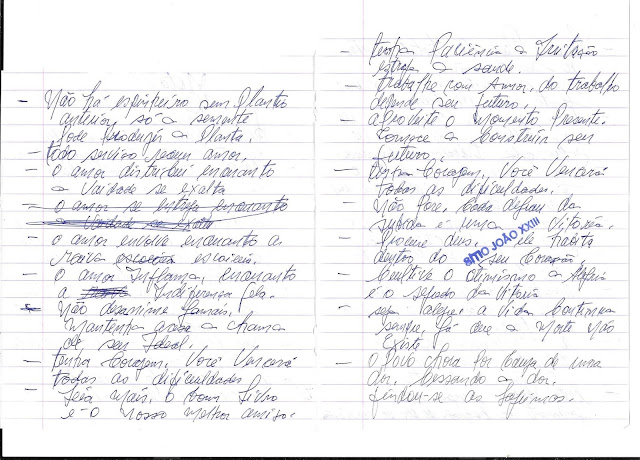 - Não há espinheiro sem Plantio
anterior, só a semente
Pode Produzir a Planta.
- todo serviço requer amor.
- o amor distribui enquanto
a Vaidade se exalta
- o amor se estriba enquanto
a Vaidade se exalta
- o amor envolve enquanto a
Raiva escoiceia.
- o amor Inflama, enquanto
a Indiferença fela.
- Não desanime Jamais.
Mantenha acesa a chama
de seu Ideal.
- tenha Coragem, Você Vencerá
todas as dificuldades
- Leia mais. o bom Livro
é o nosso melhor amigo.
- tenha Paciência a Irritação
estraga a saude.
- trabalhe com Amor, do trabalho
depende seu futuro.
- aproveite o Momento Presente.
Comece a Construir seu
futuro.
- tenha Coragem, Você Vencerá
todas as dificuldades.
- Não Pare, Cada degrau da
subida é uma Vitória.
- Procure deus, ele habita
dentro do seu Coração.
SÍTIO JOÃO XXIII
- Cultive o otimismo a alegria
é o segredo da Vitória
- seja alegre, a Vida Continua
sempre, já que a Morte não
Existe
- o Povo chora Por Causa de uma
dor. Cessando a dor.
findou-se as lagrimas.